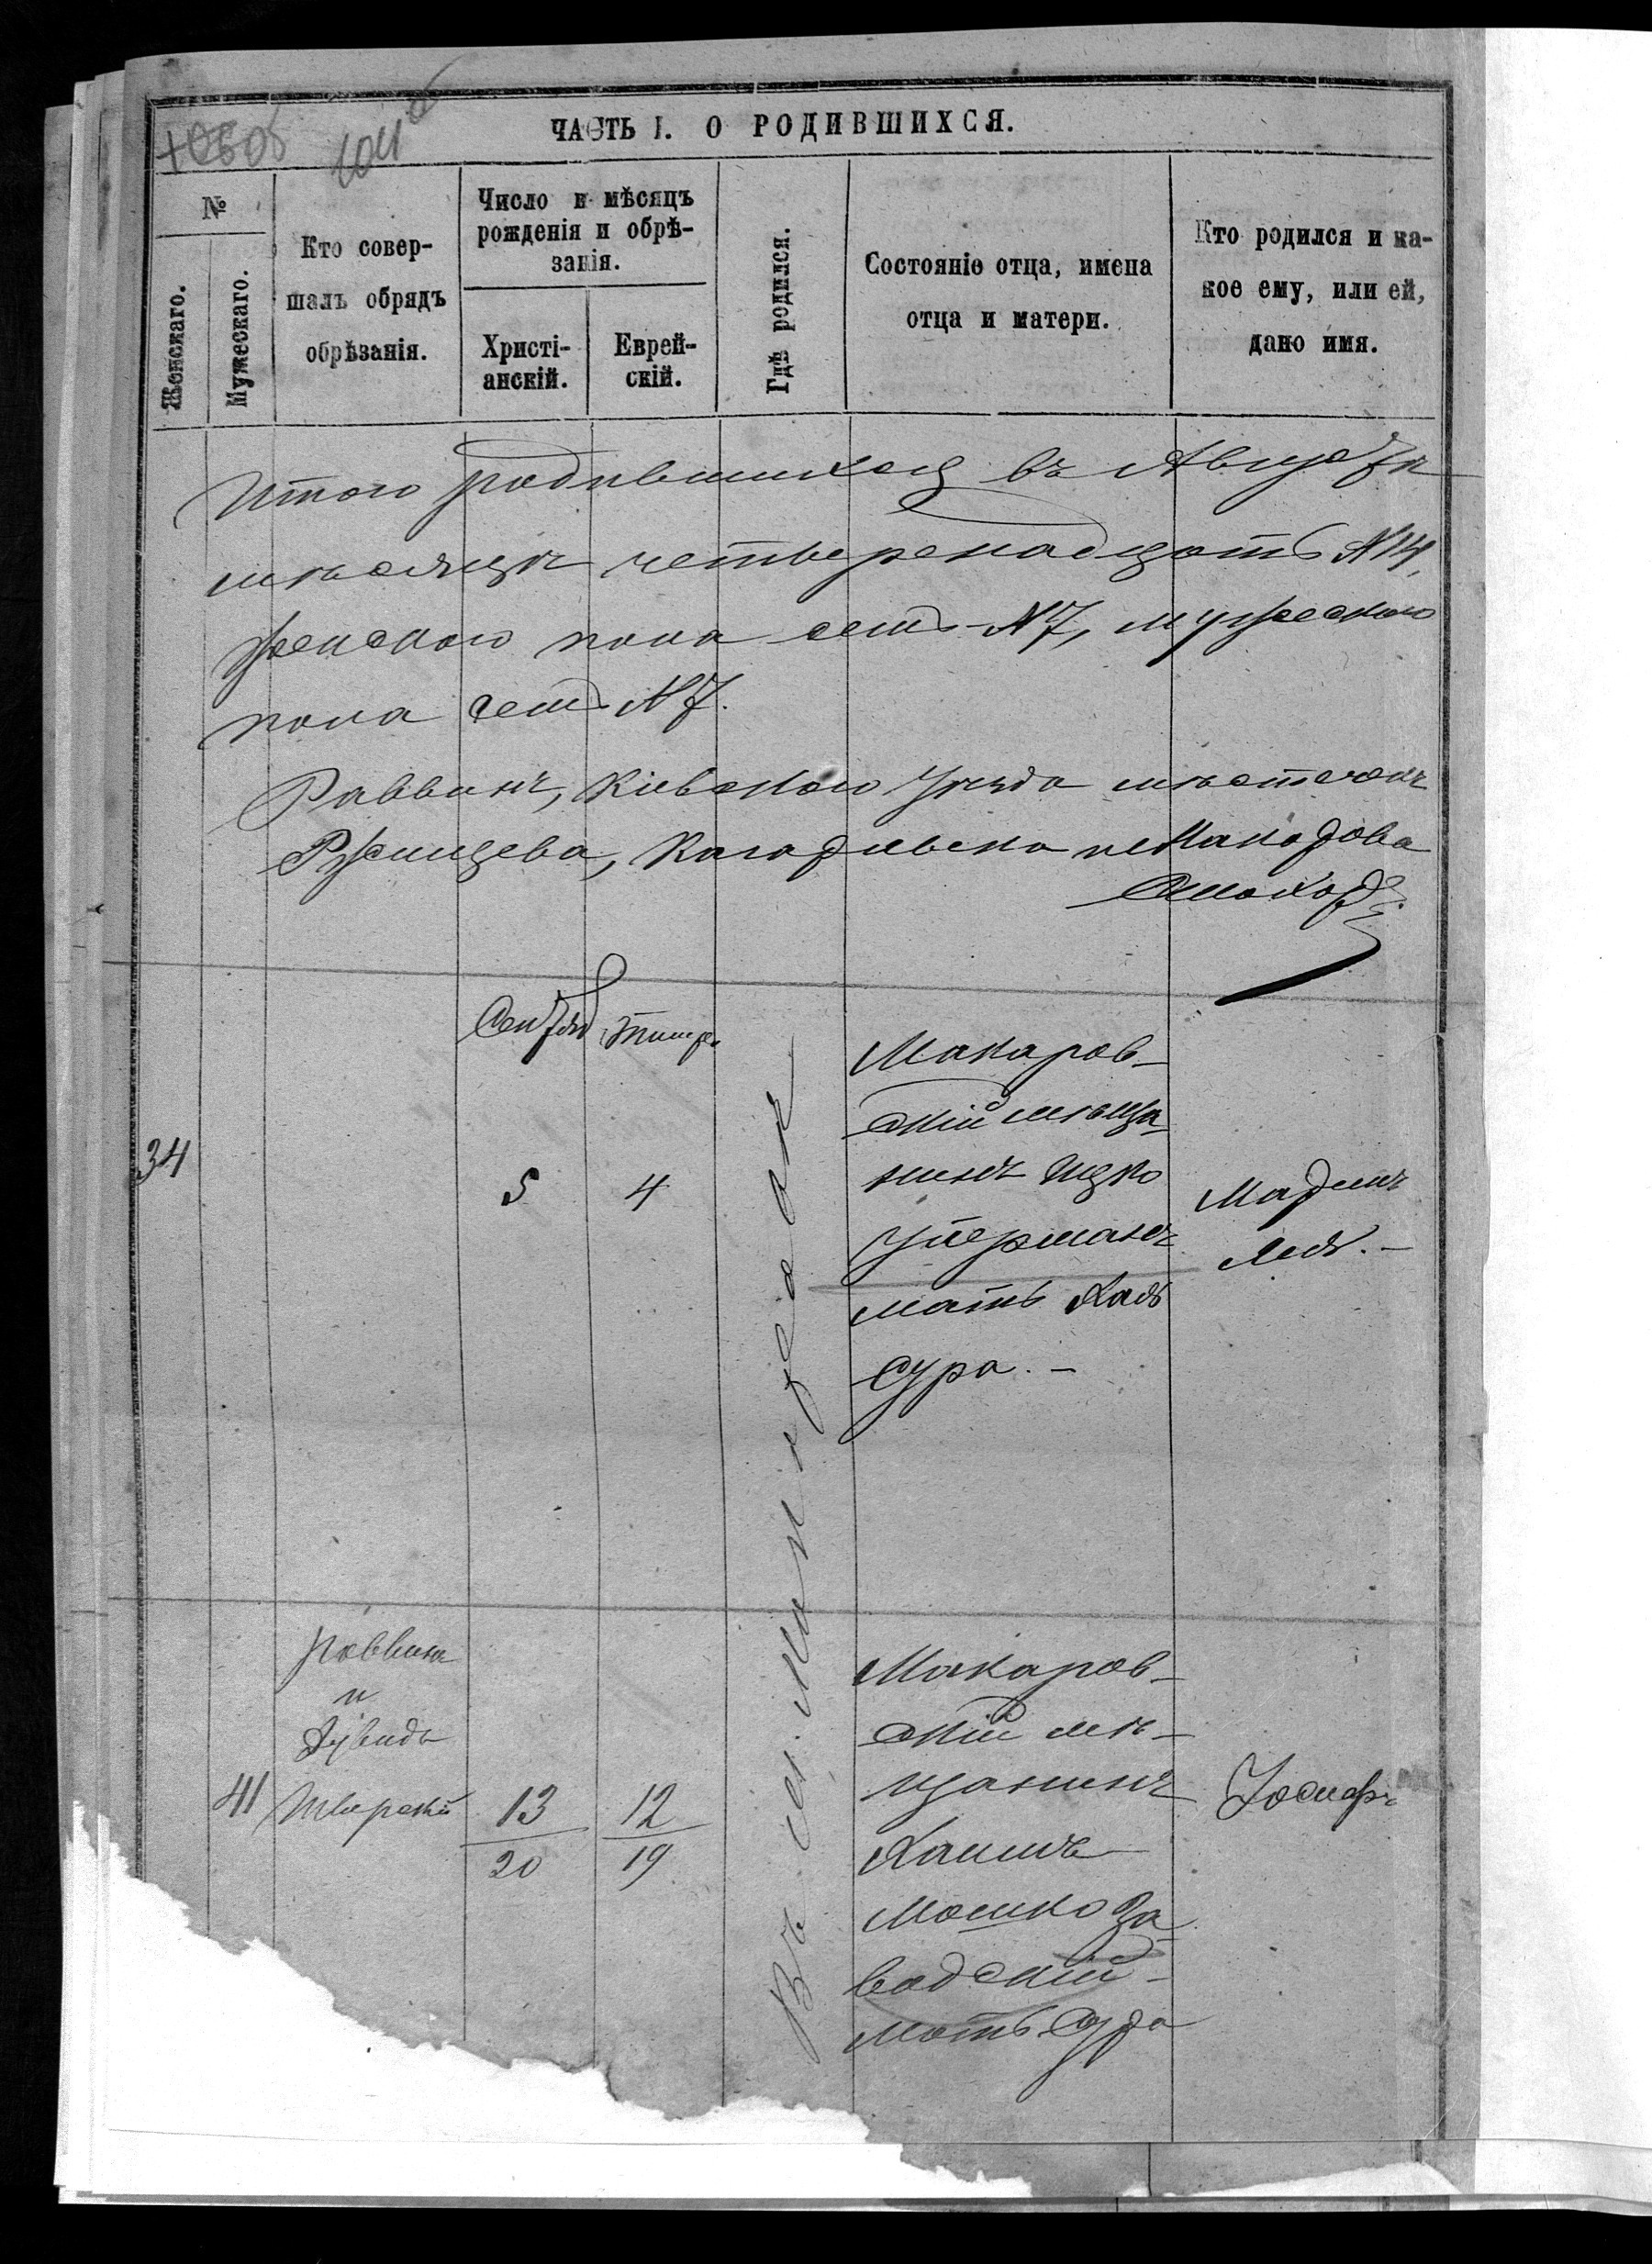 104 об
ЧАСТЬ I. О РОДИВШИХСЯ.
№
Женскаго.
Мужескаго.
Кто совер-
шалъ обрядъ
обрѣзанія.
Число и мѣсяцъ
рожденія и обрѣ-
занія.
Христі-
анскій.
Еврей-
скій.
Гдѣ родился.
Состояніе отца, имена
отца и матери.
Кто родился и ка-
кое ему, или ей,
дано имя.
Итого родившихся въ Августѣ
мѣсяцѣ четыренадцать №14,
женского пола семь №7, мужеского
пола семь №7.
Раввинъ, Кіевского Уѣзда мѣстечекъ
Ржищева, Кагарлыка и Макарова
34
Сентяб
Тишри
5
4
Въ м. Макаровѣ
Макаров-
скій мѣща-
нинъ Ицко
мать Хая
Сура. -
41
Раввинъ
и
Тверскій
13
20
12
19
Макаров-
скій мѣ-
щанинъ
Хаимъ
Мошко За-
водскій -
мать Сура
Іосифъ